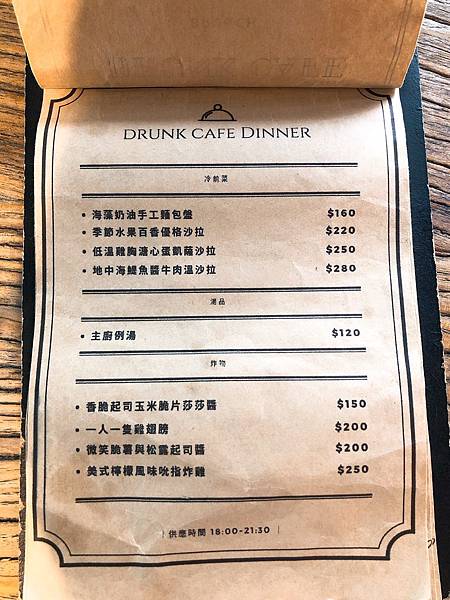 DRUNK CAFE DINNER
冷前菜
• 海藻奶油手工麵包盤 $160
• 季節水果百香優格沙拉 $220
• 低溫雞胸溏心蛋凱薩沙拉 $250
• 地中海鯷魚醬牛肉溫沙拉 $280
湯品
• 主廚例湯 $120
炸物
• 香脆起司玉米脆片莎莎醬 $150
• 一人一隻雞翅膀 $200
• 微笑脆薯與松露起司醬 $200
• 美式檸檬風味吮指炸雞 $250
| 供應時間 18:00-21:30 |